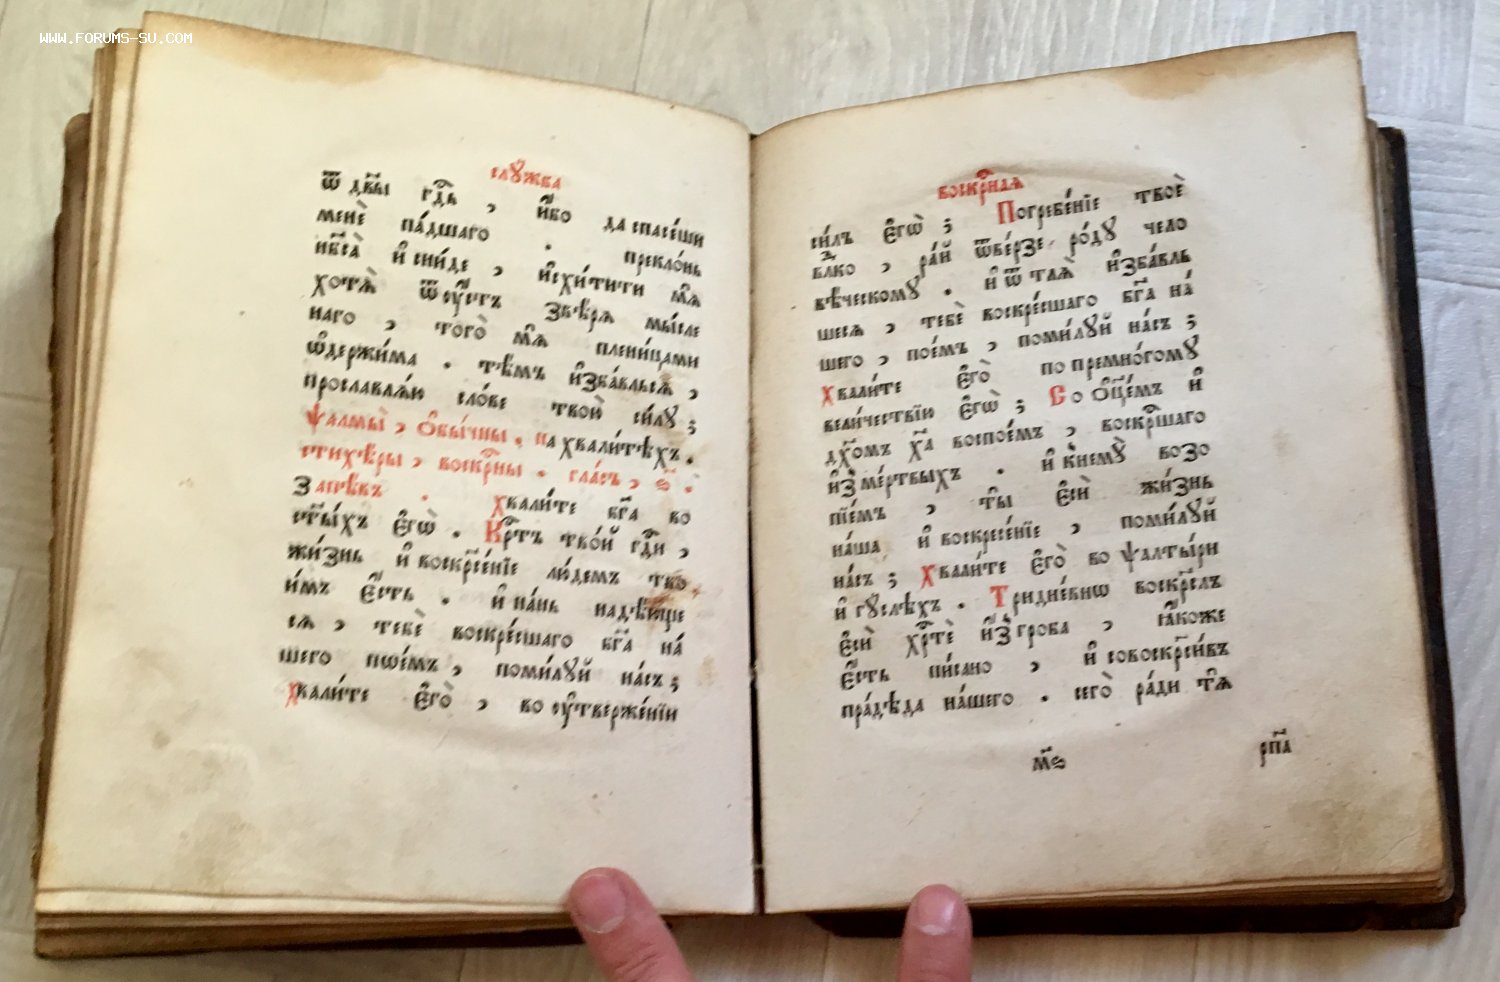 WWW.FORUMS-SU.COM
слꙋ́жба
ѿ дв҃ы гд҇ь , и҆́бо да спасе́ши
менѐ па́дшаго . прекло́нь
нб҃са̀ и҆ сни́де , и҆схи́тити мѧ̀
хотѧ̀ ѿ ᲂу҆́стъ ѕвѣ́рѧ мы́сле
наго , того̀ мѧ̀ плени́цами
ѡ҆держи́ма . тѣ́мъ и҆зба́вльсѧ ,
прославлѧ́ю сло́ве твою̀ си́лꙋ ;
ѱалмы̀ , ѻ҆бы́чны . на хвали́тѣхъ .
стихѣ́ры , воскр҇ны . гла́съ , ѕ҃ .
Запѣ́въ . хвали́те бг҃а во
ст҃ы́хъ є҆гѡ̀ . Кр҇тъ тво́й гд҇и ,
жи́знь и҆ воскр҇е́нїе лю́демъ тво
и́мъ є҆́сть . и҆ на́нь надѣ́юще
сѧ , тебѐ воскре́сшаго бг҃а на́
шего пѡе́мъ , поми́лꙋй на́съ ;
хвали́те є҆го̀ , во ᲂу҆тверже́нїи
воскр҇наѧ
си́лъ є҆гѡ̀ ; Погребе́нїе твоѐ
влд҇ко , ра́й ѿве́рзе ро́дꙋ чело
вѣ́ческомꙋ . и҆ ѿ тлѧ̀ и҆зба́вль
шесѧ , тебѐ воскре́сшаго бг҃а на́
шего , пое́мъ , поми́лꙋй на́съ ;
хвали́те є҆го̀ по премно́гомꙋ
вели́чествїю є҆гѡ̀ ; Со ѻ҆ц҃е́мъ и҆
дх҃омъ хр҇та̀ воспое́мъ , воскр҇шаго
и҆з̾ ме́ртвыхъ . и҆ к̾немꙋ̀ возо
пїе́мъ , ты̀ є҆сѝ жи́знь
на́ша и҆ воскресе́нїе , поми́лꙋй
на́съ ; хвали́те є҆го̀ во ѱалты́ри
и҆ гꙋ́слѣхъ . Тридне́внѡ воскр҇лъ
є҆сѝ хр҇тѐ и҆з̾ гроба , ꙗ҆́коже
є҆́сть пи́сано , и҆ совоскр҇си́въ
пра́дѣда на́шего . сего̀ ра́ди тѧ̀
м҃ѕ рп҃а